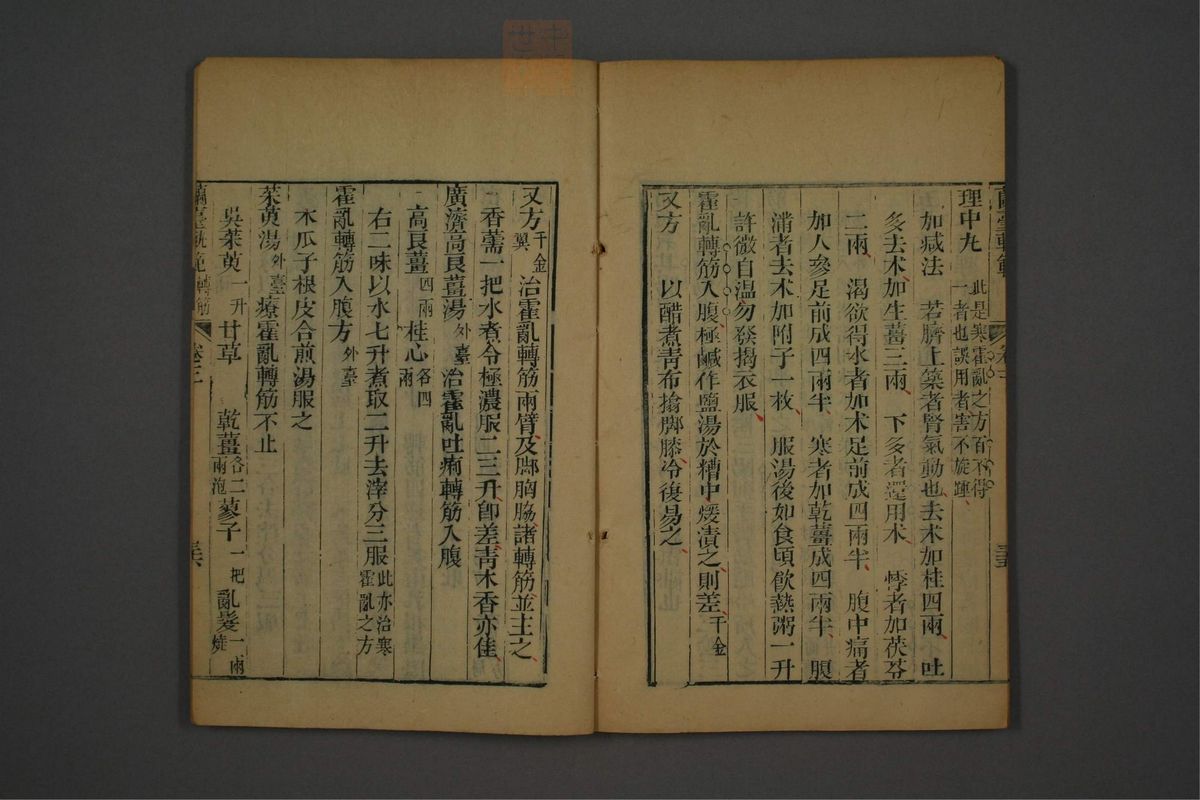 蘭臺軌範 卷三 三五
理中丸 此是寒霍亂之方百不得一者也誤用者害不旋踵
加減法 若臍上築者腎氣動也去朮加桂四兩 吐
多去朮加生薑三兩 下多者還用朮 悸者加茯苓
二兩 渴欲得水者加朮足前成四兩半 腹中痛者
加人參足前成四兩半 寒者加乾薑成四兩半 腹
滿者去朮加附子一枚 服湯後如食頃飲熱粥一升
許微自溫勿發揭衣服
霍亂轉筋入腹極鹹作鹽湯於糟中煖漬之則差 千金
又方 以醋煮青布搨脚膝冷復易之
又方 千金翼 治霍亂轉筋兩臂及脚胸脇諸轉筋並主之
香薷一把水煮令極濃服二三升卽差青木香亦佳
廣濟高良薑湯 外臺 治霍亂吐痢轉筋入腹
高良薑 四兩 桂心 各四兩
右二味以水七升煮取二升去滓分三服 此亦治寒霍亂之方
霍亂轉筋入腹方 外臺
木瓜子根皮合煎湯服之
茱萸湯 外臺 療霍亂轉筋不止
吳茱萸 一升 甘草 乾薑 各二兩泡 蓼子 一把 亂髮 一兩燒
蘭臺軌範 轉筋 卷三 三六